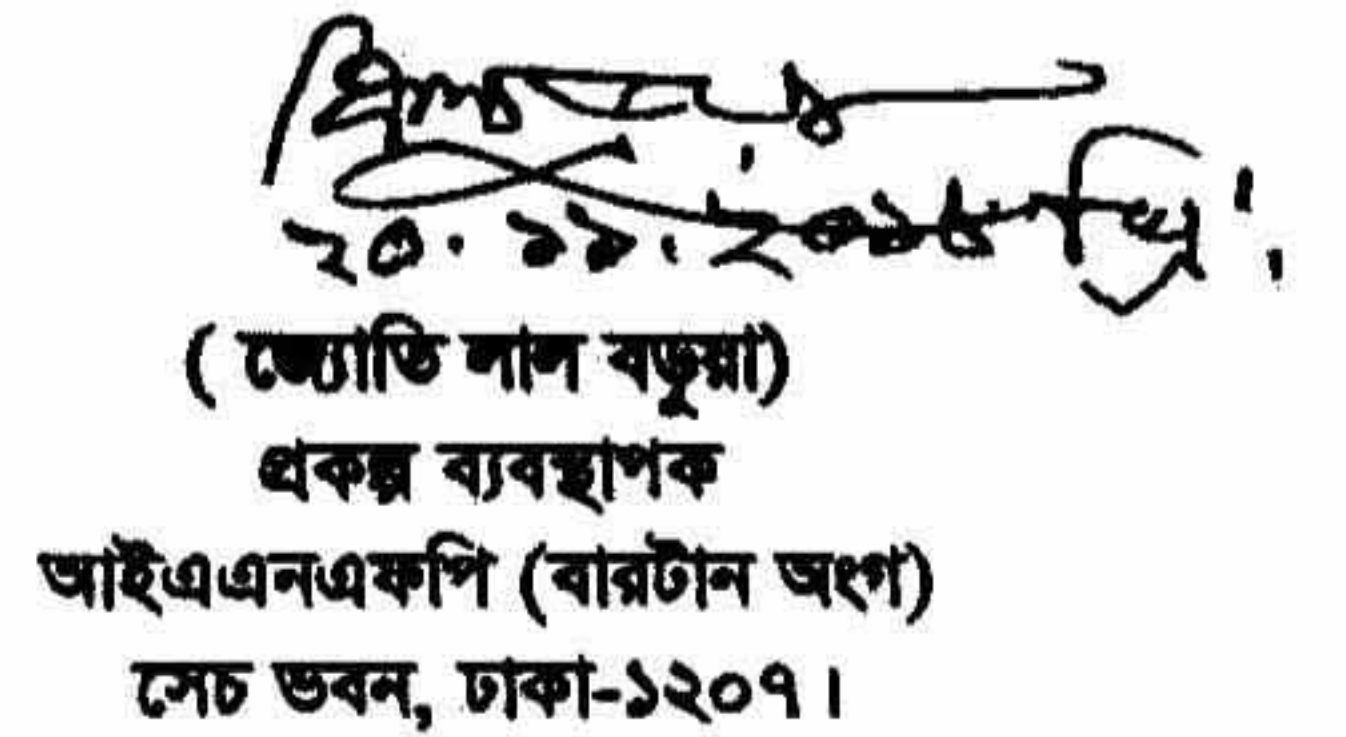 ২০.১১.২০১৬ খ্রি:
( জ্যোতি লাল বড়ুয়া)
প্রকল্প ব্যবস্থাপক
আইএএনএফপি (বারটান অংগ)
সেচ ভবন, ঢাকা-১২০৭।